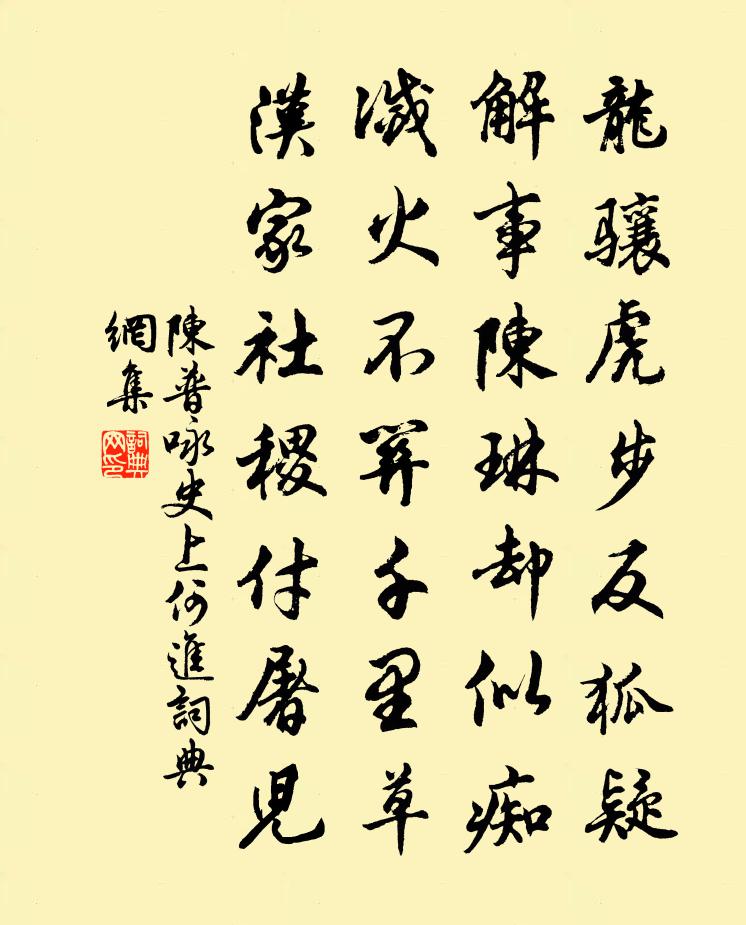 龍骧虎步反狐疑
解事陳琳却似痴
滅火不筭千里草
漢家社稷付屠児
陳普咏史上何進詞典
網集
詞典网印